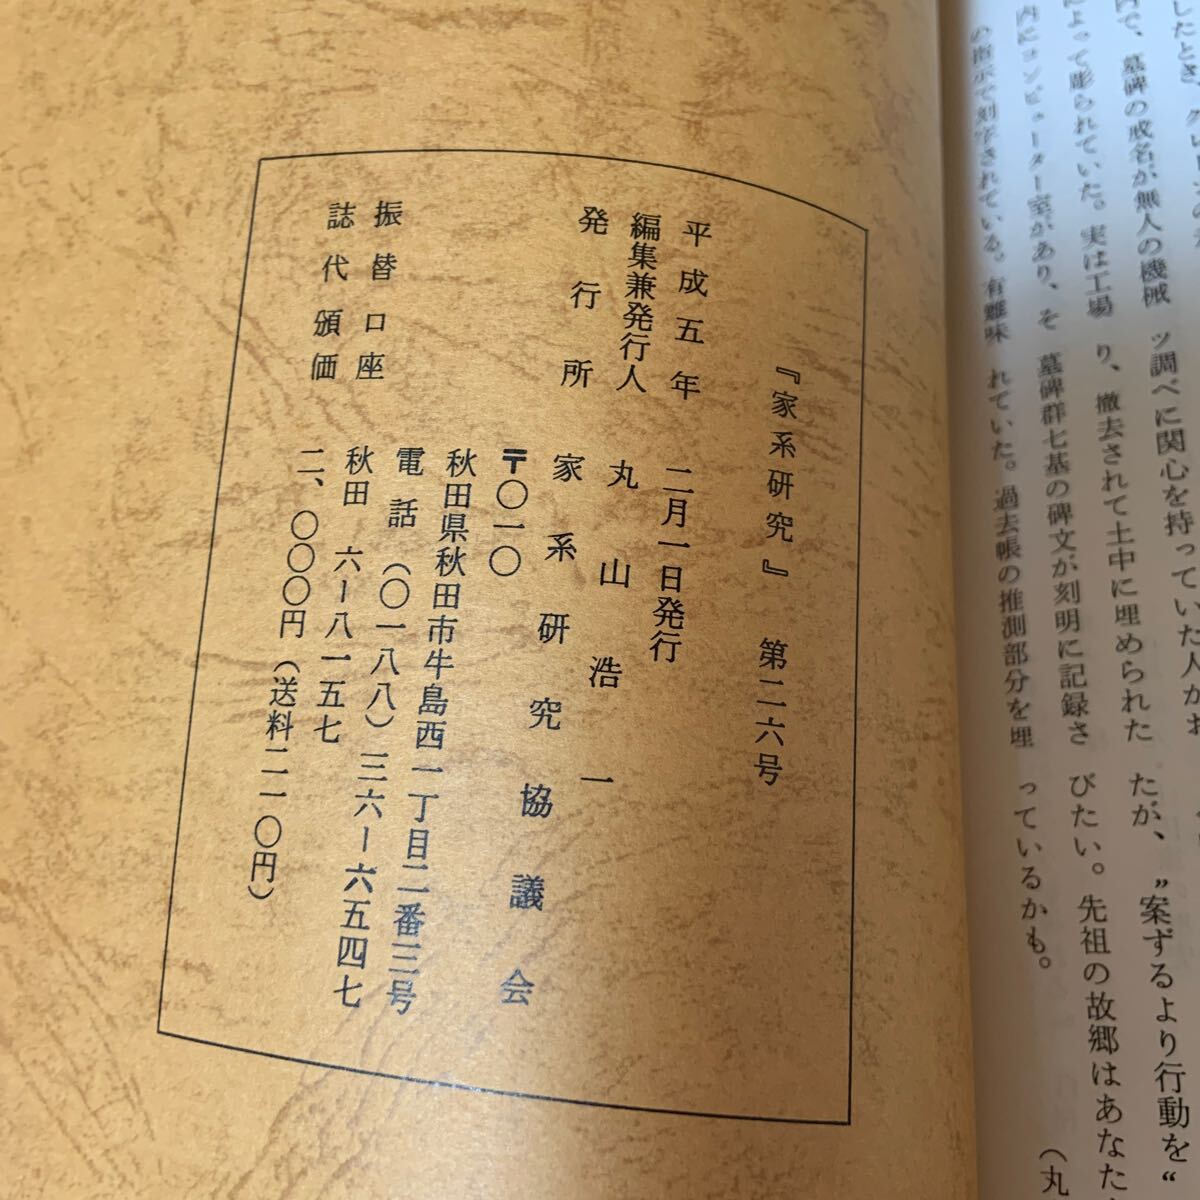 したとき、
内で、墓碑の戒名が無人の機械
によって彫られていた。実は工場
内にコンピューター室があり、そ
の指示で刻字されている。有難味
ツ調べに関心を持っていた人がお
り、撤去されて土中に埋められた
墓碑群七基の碑文が刻明に記録さ
れていた。過去帳の推測部分を埋
たが、〝案ずるより行動を〟
びたい。先祖の故郷はあなた
っているかも。
（丸
『家系研究』 第二六号
平成五年 二月一日発行
編集兼発行人 丸山浩一
発行所 家系研究協議会
〒〇一〇
秋田県秋田市牛島西一丁目二番三号
電話（〇一八八）三六ー六五四七
振替口座 秋田 六ー八一五七
誌代頒価 二、〇〇〇円（送料二一〇円）